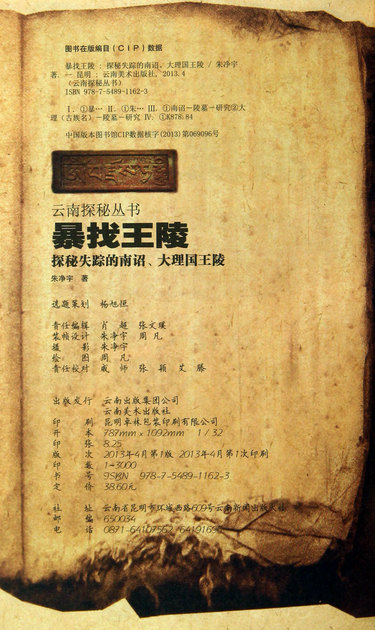 图书在版编目(CIP)数据
暴找王陵:探秘失踪的南诏、大理国王陵/朱净宇
著. - 昆明:云南美术出版社, 2013.4
(云南探秘丛书)
ISBN 978-7-5489-1162-3
Ⅰ.①暴… Ⅱ.①朱… Ⅲ.①南诏-陵墓-研究②大
理(古族名)-陵墓-研究 Ⅳ: ①K878.84
中国版本图书馆CIP数据核字(2013)第069096号
云南探秘丛书
暴找王陵
探秘失踪的南诏、大理国王陵
朱净宇 著
选题策划 杨旭恒
责任编辑 肖超 张文璞
装帧设计 朱净宇 周凡
摄影 朱净宇
绘图 周凡
责任校对 臧师 张颖 艾滕
出版发行 云南出版集团公司
云南美术出版社
印刷 昆明卓林包装印刷有限公司
开本 787mm×1092mm 1/32
印张 8.25
版次 2013年4月第1版 2013年4月第1次印刷
印数 1-3000
书号 ISBN 978-7-5489-1162-3
定价 38.60元
社址 云南省昆明市环城西路609号云南新闻出版大楼
邮编 650034
电话 0871-64107562